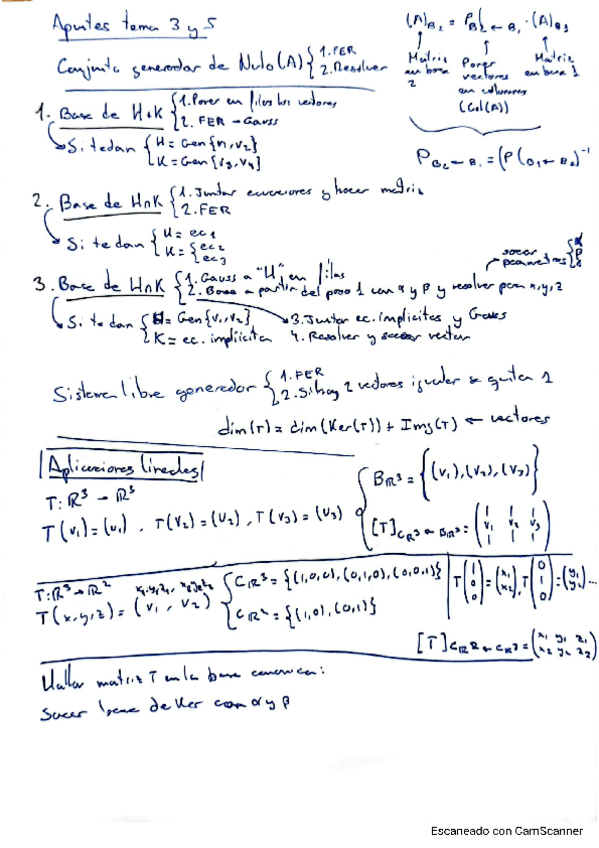 Apuntes tema 3 y 5
(A)B₂ = P B₂ ← B₁ · (A)B₁
Matriz en base 2
Poner vectores en columnas (Col(A))
Matriz en base 1
Conjunto generador de Nulo(A) { 1. FER
2. Resolver
P B₂ ← B₁ = (P (B₁ ← B₂))⁻¹
1. Base de H+K { 1. Poner en filas los vectores
2. FER → Gauss
Si te dan { H = Gen{v₁, v₂}
K = Gen{v₃, v₄}
2. Base de H∩K { 1. Juntar ecuaciones y hacer matriz
2. FER
Si te dan { H = ec1
K = { ec2
ec3
sacar parametros { α
β
3. Base de H∩K { 1. Gauss a "H" en filas
2. Base a partir del paso 1 con α y β y resolver para x, y, z
Si te dan { H = Gen{v₁, v₂}
K = ec. implícita
3. Juntar ec. implicitas y Gauss
4. Resolver y sacar vector
Sistema libre generador { 1. FER
2. Si hay 2 vectores iguales se quita 1
dim(T) = dim(Ker(T)) + Img(T) ← vectores
Aplicaciones lineales
T: ℝ³ → ℝ³
T(v₁) = (u₁) , T(v₂) = (u₂) , T(v₃) = (u₃)
B ℝ³ = {(v₁), (v₂), (v₃)}
[T] C ℝ³ ← B ℝ³ = ( | | |
v₁ v₂ v₃
| | | )
T: ℝ³ → ℝ²
T(x, y, z) = (v₁, v₂)
x₁y₁z₁, x₂y₂z₂
C ℝ³ = {(1,0,0), (0,1,0), (0,0,1)}
C ℝ² = {(1,0), (0,1)}
T (1 0 0) = (x₁ x₂), T (0 1 0) = (y₁ y₂) ...
[T] C ℝ² ← C ℝ³ = (x₁ y₁ z₁
x₂ y₂ z₂)
Hallar matriz T en la base canonica:
Sacar base de Ker con α y β
Escaneado con CamScanner